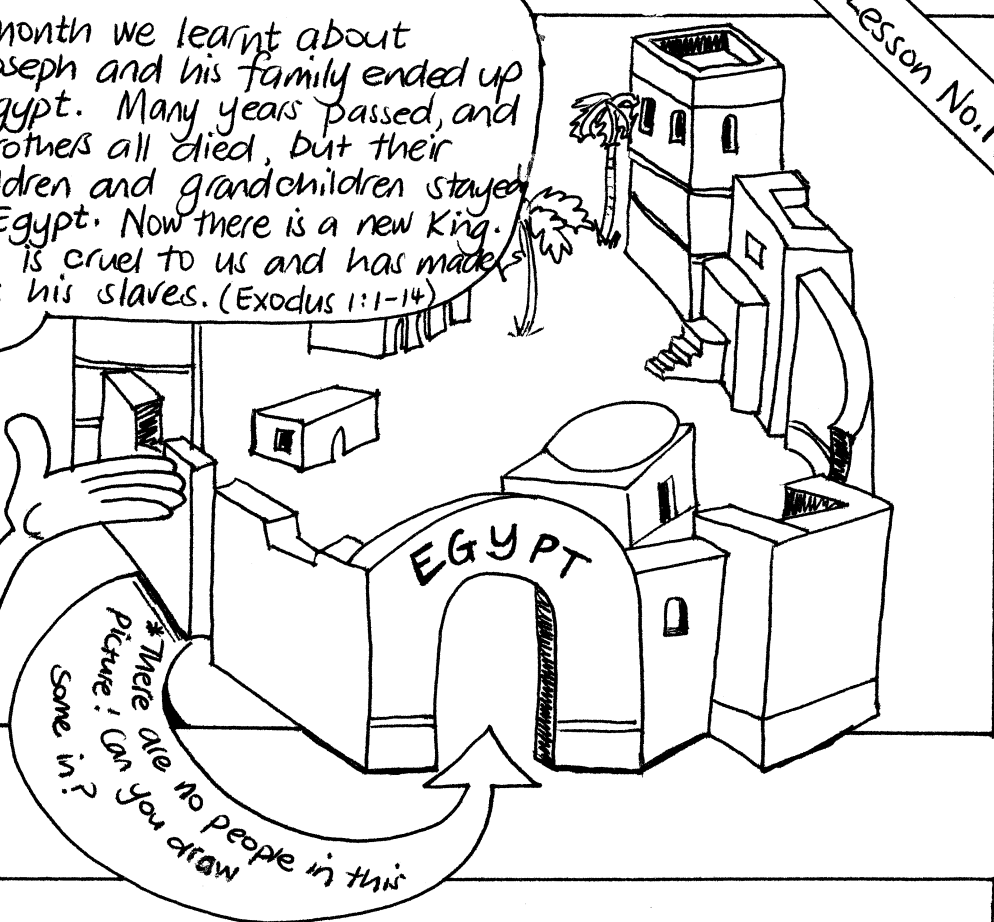 month we learnt about
oseph and his family ended up
gypt. Many years passed, and
rothers all died, but their
ldren and grandchildren stayed
Egypt. Now there is a new King.
is cruel to us and has made
his slaves. (Exodus 1:1-14)
Lesson No.1
EGYPT
*There are no people in this
picture! Can you draw
some in?